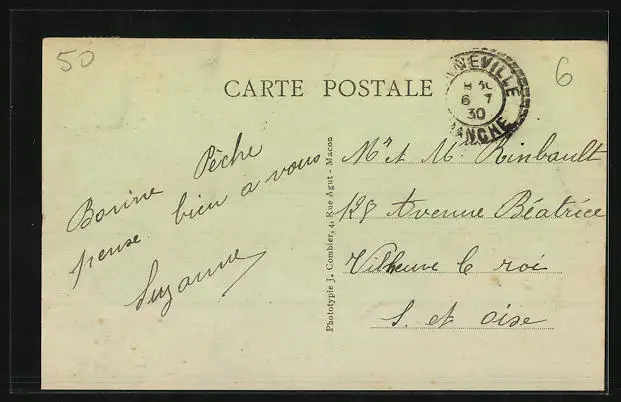 50
6
CARTE POSTALE
NNEVILLE
6 7
30
MANCHE
Bonne Pêche
pense bien a vous
Suzanne
Phototypie J. Combier, 4, Rue Agut - Macon
Mr et Me Rinbault
125 Avenue Béatrice
Villneuve le roi
S. et oise